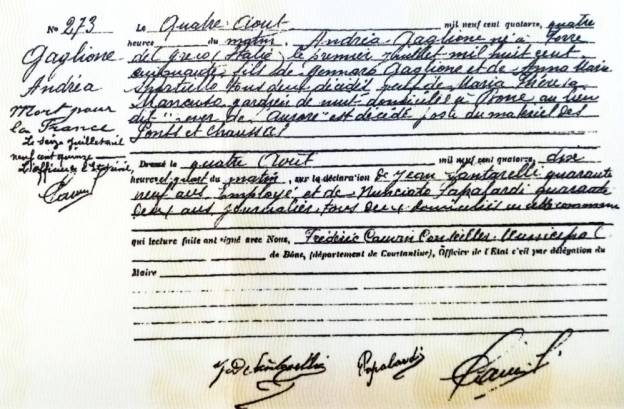 No 273
Gaglione
Andréa
Mort pour
la France
Le seize juillet mil
neuf cent quinze
L'officier de l'Etat civil,
Le Quatre Aout mil neuf cent quatorze, quatre
heures du matin, Andréa Gaglione né à Torre
del Greco, Italie, le premier juillet mil huit cent
cinquante, fils de Gennaro Gaglione et de Anna Maria
tous deux décédés, de Maria Thérésa
gardien de nuit domicilié à Bone au lieu
dit " Aurore" est décédé du matériel des
Ponts et Chaussées
Dressé le quatre Aout mil neuf cent quatorze, dix
heures et quart du matin, sur la déclaration de Jean Santarelli quarante
neuf ans employé et de Nunciato Papalardi quarante
deux ans journalier, tous deux domiciliés en cette commune
qui lecture faite ont signé avec Nous, Frédéric Conseiller Municipal
de Bône, (département de Constantine), Officier de l'Etat c'vil par délégation du
Maire
Papalardi